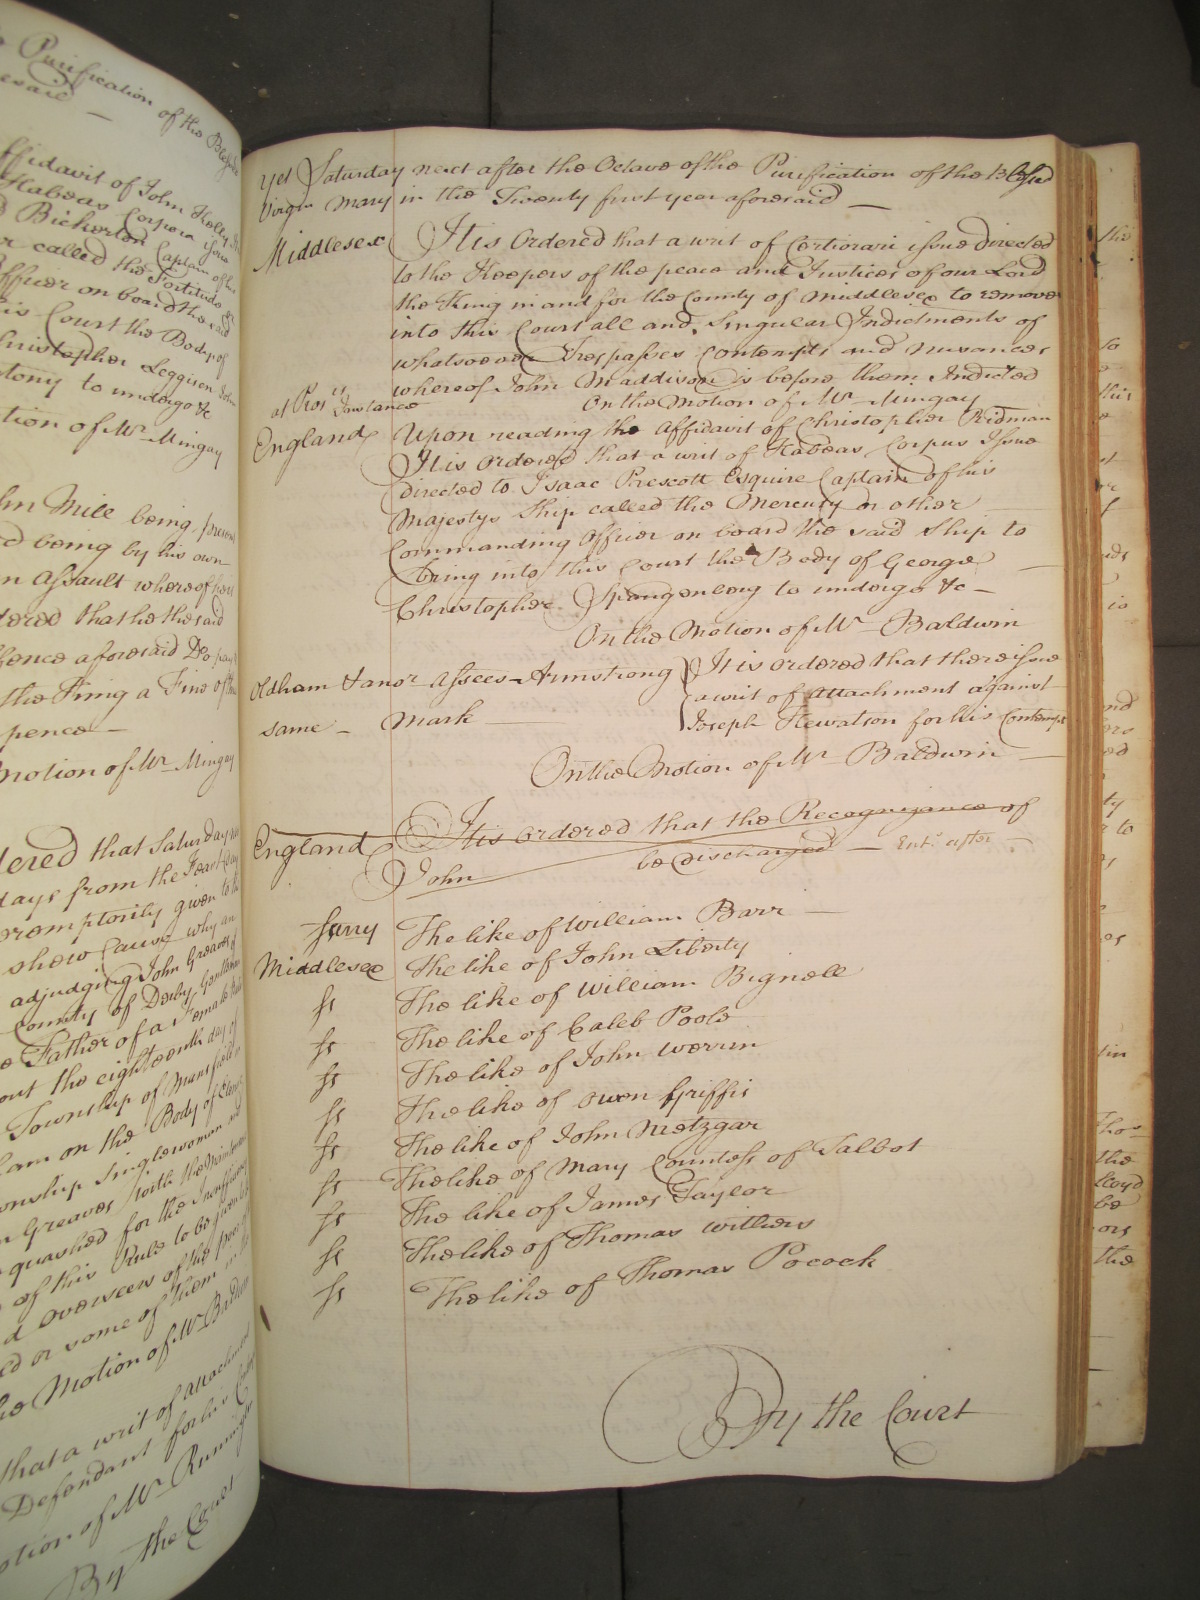 Purification of the Blessed
esaid —
ffidavit of John Kelly
Habeas Corpora issue
Bickerton Captain of his
r called the Fortitude or
fficer on board the said
is Court the Body of
hristopher Leggisen John
tony to undergo &c
tion of Mr Mingay
hn Mill being present
d being by his own
n Assault whereof
dered that he the said
ffence aforesaid Do pay
the King a Fine of
pence —
Motion of Mr Mingay
dered that Saturday
days from the Feast day
eremptorily given to the
shew Cause why an
adjudging John Greaves of
County of Derby Gentleman
e Father of a Female
out the eighteenth day of
Township of Mansfield
lam on the Body of
ownship Singlewoman and
n Greaves with the
quashed for the Insufficiency
of this Rule to be given
d Overseers of the poor of
ed or some of them
he Motion of Mr Baldwin
that a writ of Attachment
Defendant for his
otion of Mr Runnington
By the Court
Yet Saturday next after the Octave of the Purification of the Blessed
Virgin Mary in the Twenty first year aforesaid —
Middlesex It is Ordered that a writ of Certiorari issue directed
to the Keepers of the peace and Justices of our Lord
the King in and for the County of Middlesex to remove
into this Court all and Singular Indictments of
whatsoever Trespasses Contempts and nusances
whereof John Maddison is before them Indicted
at Pros.rs Instance On the Motion of Mr Mingay
England Upon reading the Affidavit of Christopher Ridman
It is ordered that a writ of Habeas Corpus Issue
directed to Isaac Prescott Esquire Captain of his
Majestys Ship called the Mercury or other
Commanding Officer on board the said Ship to
bring into this Court the Body of George
Christopher Spangenberg to undergo &c —
On the Motion of Mr Baldwin
Oldham & anor Assees - Armstrong } It is ordered that there issue
a writ of Attachment against
same - Mark — Joseph Hewatson for his Contempt
On the Motion of Mr Baldwin —
England It is ordered that the Recognizance of
John be discharged — Ent.d after
Surry The like of William Barr —
Middlesex The like of John Liberty
ss The like of William Bignell
ss The like of Caleb Poole
ss The like of John Werrin
ss The like of Owen Griffis
ss The like of John Metzgar
ss The like of Mary Countess of Talbot
ss The like of James Taylor
ss The like of Thomas Withers
ss The like of Thomas Pocock
By the Court